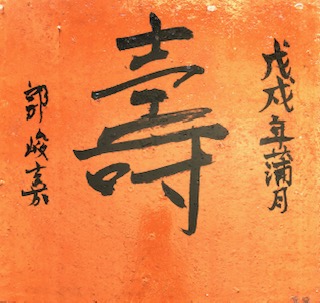 戊戌年蒲月
壽
郭峻嘉